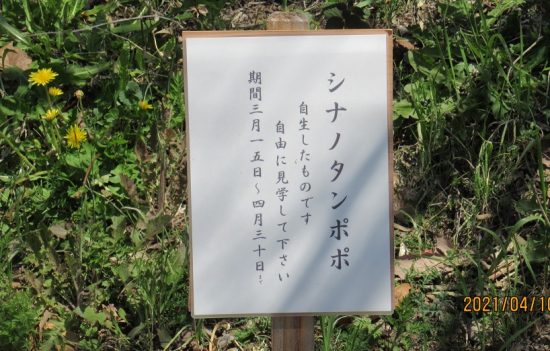 シナノタンポポ
自生したものです
自由に見学して下さい
期間三月一五日～四月三十日まで
2021/04/10